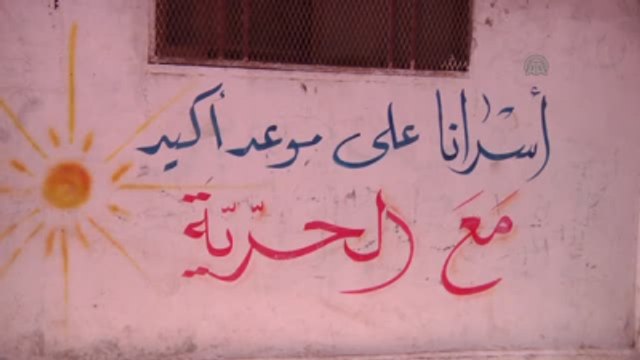 أسرانا على موعد أكيد
مَعَ الحرّية